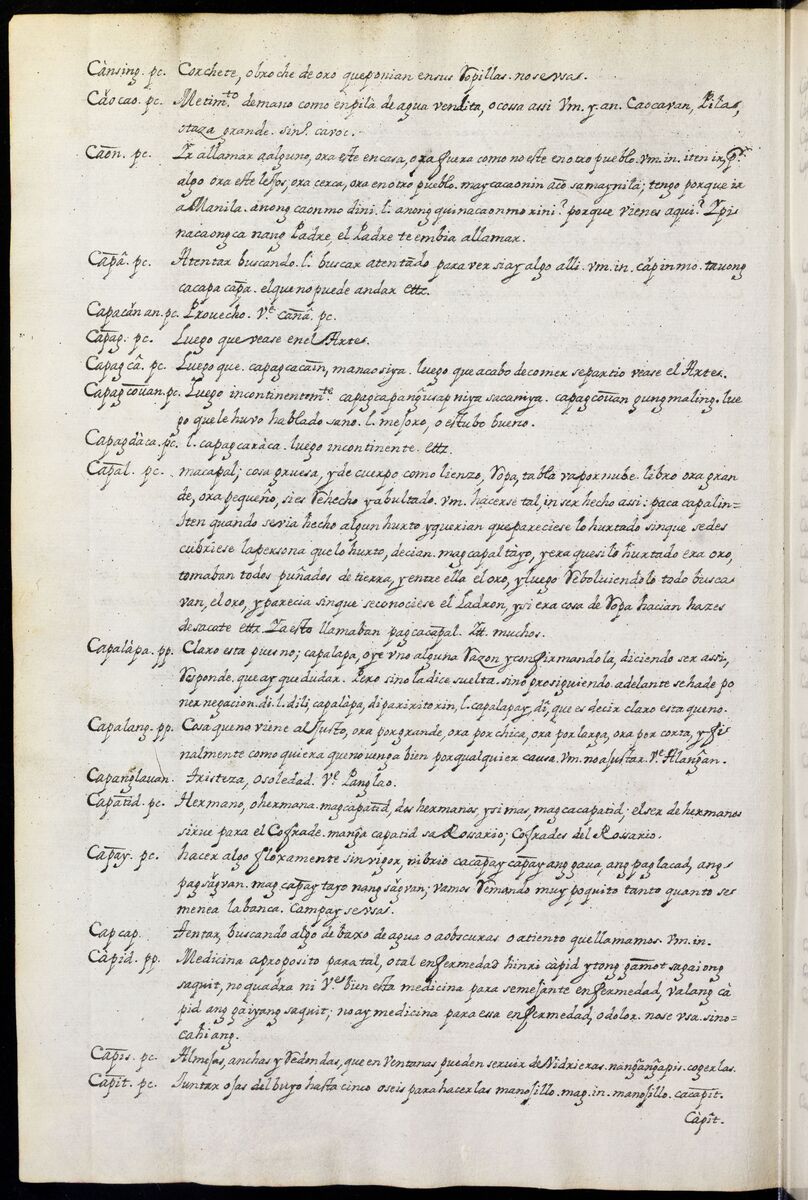 Cànsing. pc. Corchete, o broche de oro que ponian en sus Ropillas. no se vsa.
Căocao. pc. Metim.to de mano como en pila de agua vendita, o cossa assi Vm. y. an. Caocavan, Pilas,
otaza grande. sin.l. cavoc.
Caōn. pc. Ir a llamar a alguno, ora este en casa, o ra fuera como no este en otro pueblo. vm. in. iten ir, pr.
algo ora este lejos, ora cerca, ora en otro pueblo. may cacaonin aco sa maynila; tengo porque ir
a Manila. anong caon mo dini. l. anong quinacaon mo rini? porque vienes aqui? Ypi
nacaong ca nang Padre, el Padre te embia a llamar.
Capâ. pc. Atentar buscando. l. buscar atentādo para ver si ay algo alli. vm. in. căpin mo. tavong
cacapa cāpa. el que no puede andar ettz.
Capacănan. pc. Prouecho. Ve. canâ. pc.
Cāpag. pc. Luego que vease en el Artes.
Capagcâ. pc. Luego que. capagcacaīn, manao siya. luego que acabo de comer se partio vease el Artes.
Capagcoūan. pc. Luego incontinentem.te capagcapangusap niya sacaniya. capagcoūan gungmaling. lue
go que le huvo hablado sano. l. mejoro, o estubo bueno.
Capagdàca. pc. l. capagcaràca. luego incontinente. ettz.
Capāl. pc. macapal; cosa gruesa, y de cuerpo como lienzo, Ropa, tabla va por nube. libro ora gran
de, ora pequeño, si es Rehecho y abultado. vm. hacerse tal, in ser hecho assi: paca capalin=
Iten quando se via hecho algun hurto y querian que pareciese lo hurtado sin que se des
cubriese la persona que lo hurto, decian. mag capal tàyo, y era que si lo hurtado era oro,
tomaban todos puñados de tierra, y entre ella el oro, y luego Reboluiendolo todo busca
van, el oro, y parecia sin que se conociese el Ladron, y si era cosa de Ropa hacian hazes
de sacate ettz. Ya esto llamaban pagcacāpal. Itt. muchos.
Capalàpa. pp. Claro esta pues no; capalapa, oye vno alguna Razon y confirmandola, diciendo ser assi,
Responde. que ay que dudar. Pero sino la dice suelta. sino prosiguiendo adelante se ha de po
ner negacion. di. l. dili capalàpa, di paririto rin, l. capalapay, di, que es decir claro esta que no.
Capalang. pp. Cosa que no viene al Justo, ora por grande, ora por chica, ora por larga, ora por corta, y fi
nalmente como quiera que no venga bien por qualquier causa. vm. no ajustar. Ve. Alangan.
Capanglauan. tristeza, o soledad. Ve. Panglao.
Capātid. pc. Hermano, o hermana. magcapatid, dos hermanos, y si mas, mag cacapatid; el ser de hermanos
sirue para el Cofrade. manga capatid sa Rossario; Cofrades del Rossario.
Cāpay. pc. hacer algo floxamente sin vigor, ni brio cacāpay cāpay ang gaua, ang pag lacad, ang
pag săgvan. mag cāpay tayo nang săgvan; vamos Remando muy poquito tanto quanto se
menea la banca. Campay se vsa.
Cap cap. tentar, buscando algo debaxo de agua o a obscuras o atiento que llamamos. vm. in.
Càpid. pp. Medicina a proposito para tal, o tal enfermedad hinri càpid ytong gamot sa gaiong
saquit, no quadra ni Ve. bien esta medicina para semejante enfermedad, valang cà
pid ang gaiyang saquit; no ay medicina para essa enfermedad, o dolor. no se vsa. sino=
cahiang.
Cāpis. pc. Almejas, anchas y Redondas, que en Ventanas pueden seruir de Vidrieras. nangangāpis. cogerlas.
Cāpit. pc. Iuntar ojas del buyo hasta cinco o seis para hacerlas manojillo. mag. in. manojillo. cacāpit.
Càpit.